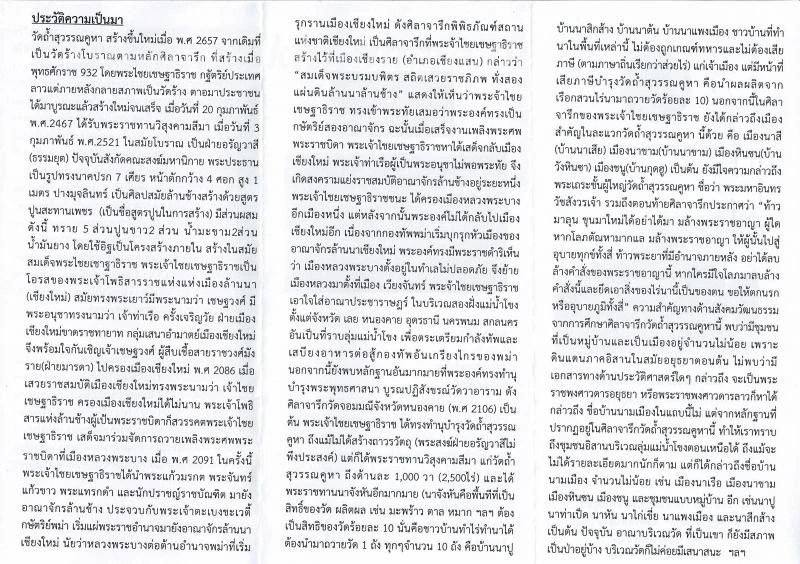 ประวัติความเป็นมา
วัดถ้ำสุวรรณคูหา สร้างขึ้นใหม่เมื่อ พ.ศ 2657 จากเดิมที่
เป็นวัดร้างโบราณตามหลักศิลาจาริก ที่สร้างเมื่อ
พุทธศักราช 932 โดยพระไชยเชษฐาธิราช กษัตริย์ประเทศ
ลาวแต่ภายหลังกลายสภาพเป็นวัดร้าง ตาอมาประชาชน
ได้มาบูรณะแล้วสร้างใหม่จนเสร็จ เมื่อวันที่ 20 กุมภาพันธ์
พ.ศ.2467 ได้รับพระราชทานวิสุงคามสีมา เมื่อวันที่ 3
กุมภาพันธ์ พ.ศ.2521 ในสมัยโบราณ เป็นฝ่ายอรัญวาสี
(ธรรมยุต) ปัจจุบันสังกัดคณะสงฆ์มหานิกาย พระประธาน
เป็นรูปทรงนาคปรก 7 เศียร หน้าตักกว้าง 4 ศอก สูง 1
เมตร ปางมุจลินทร์ เป็นศิลปสมัยล้านช้างสร้างด้วยสูตร
ปูนสะทานเพชร (เป็นชื่อสูตรปูนในการสร้าง) มีส่วนผสม
ดังนี้ ทราย 5 ส่วนปูนขาว2 ส่วน น้ำมะขาม2ส่วน
น้ำมันยาง โดยใช้อิฐเป็นโครงสร้างภายใน สร้างในสมัย
สมเด็จพระไชยเชาฐาธิราช พระเจ้าไชยเชษฐาธิราชเป็น
โอรสของพระเจ้าโพธิสารราชแห่งแห่งเมืองล้านนา
(เชียงใหม่) สมัยทรงพระเยาว์มีพระนามว่า เชษฐวงศ์ มี
พระอนุชาทรงนามว่า เจ้าท่าเรือ ครั้งเจริญวัย ฝ่ายเมือง
เชียงใหม่ขาดราชทายาท กลุ่มเสนาอำมาตย์เมืองเชียงใหม่
จึงพร้อมใจกันเชิญเจ้าเชษฐวงศ์ ผู้สืบเชื้อสายราชวงศ์มัง
ราย(ฝ่ายมารดา) ไปครองเมืองเชียงใหม่ พ.ศ 2086 เมื่อ
เสวยราชสมบัติเมืองเชียงใหม่ทรงพระนามว่า เจ้าไชย
เชษฐาธิราช ครองเมืองเชียงใหม่ได้ไม่นาน พระเจ้าโพธิ
สารแห่งล้านช้างผู้เป็นพระราชบิดาก็สวรรคตพระเจ้าไชย
เชษฐาธิราช เสด็จมาร่วมจัดการถวายเพลิงพระศพพระ
ราชบิดาที่เมืองหลวงพระบาง เมื่อ พ.ศ 2091 ในครั้งนี้
พระเจ้าไชยเชษฐาธิราชได้นำพระแก้วมรกต พระจันทร์
แก้วขาว พระแทรกดำ และนักปราชญ์ราชบัณฑิต มายัง
อาณาจักรล้านช้าง ประจวบกับพระเจ้าตะเบงชะเวตี้
กษัตริย์พม่า เริ่มแผ่พระราชอำนาจมายังอาณาจักรล้านนา
เชียงใหม่ นัยว่าหลวงพระบางต่อต้านอำนาจพม่าที่เริ่ม
รุกรานเมืองเชียงใหม่ ดังศิลาจารึกพิพิธภัณฑ์สถาน
แห่งชาติเชียงใหม่ เป็นศิลาจารึกที่พระเจ้าไชยเชษฐาธิราช
สร้างไว้ที่เมืองเชียงราย (อำเภอเชียงแสน) กล่าวว่า
“สมเด็จพระบรมบพิตร สถิตเสวยราชพิภพ ทั้งสอง
แผ่นดินล้านนาล้านช้าง” แสดงให้เห็นว่าพระเจ้าไชย
เชษฐาธิราช ทรงเข้าพระทัยเสมอว่าพระองค์ทรงเป็น
กษัตริย์สองอาณาจักร ฉะนั้นเมื่อเสร็จงานเพลิงพระศพ
พระราชบิดา พระเจ้าไชยเชษฐาธิราชหาได้เสด็จกลับเมือง
เชียงใหม่ พระเจ้าท่าเรือผู้เป็นพระอนุชาไม่พอพระทัย จึง
เกิดสงครามแย่งราชสมบัติอาณาจักรล้านช้างอยู่ระยะหนึ่ง
พระเจ้าไชยเชษฐาธิราชชนะ ได้ครองเมืองหลวงพระบาง
อีกเมืองหนึ่ง แต่หลังจากนั้นพระองค์ไม่ได้กลับไปเมือง
เชียงใหม่อีก เนื่องจากกองทัพพม่าเริ่มบุกรุกหัวเมืองของ
อาณาจักรล้านนาเชียงใหม่ พระองค์ทรงมีพระราชดำริเห็น
ว่า เมืองหลวงพระบางตั้งอยู่ในทำเลไม่ปลอดภัย จึงย้าย
เมืองหลวงมาตั้งที่เมือง เวียงจันทร์ พระเจ้าไชยเชษฐาธิราช
เอาใจใส่อาณาประชาราษฎร์ ในบริเวณสองฝั่งแม่น้ำโขง
ตั้งแต่จังหวัด เลย หนองคาย อุดรธานี นครพนม สกลนคร
อันเป็นที่ราบลุ่มแม่น้ำโขง เพื่อตระเตรียมกำลังทัพและ
เสบียงอาหารต่อสู้กองทัพอันเกรียงไกรของพม่า
นอกจากนี้ยังพบหลักฐานอันมากมายที่พระองค์ทรงทำนุ
บำรุงพระพุทธศาสนา บูรณปฏิสังขรณ์วัดวาอาราม ดัง
ศิลาจาริกวัดจอมมณีจังหวัดหนองคาย (พ.ศ 2106) เป็น
ต้น พระเจ้าไชยเชษฐาธิราช ได้ทรงทำนุบำรุงวัดถ้ำสุวรรณ
คูหา ถึงแม้ไม่ได้สร้างถาวรวัตถุ (พระสงฆ์ฝ่ายอรัญวาสีไม่
พึงประสงค์) แต่ก็ได้พระราชทานวิสุงคามสีมา แก่วัดถ้ำ
สุวรรณคูหา ถึงด้านละ 1,000 วา (2,500ไร่) และได้
พระราชทานนาจังหันอีกมากมาย (นาจังหันคือพื้นที่ที่เป็น
สิทธิ์ของวัด ผลิตผล เช่น มะพร้าว ตาล หมาก ฯลฯ ต้อง
เป็นสิทธิของวัดร้อยละ 10 นั่นคือชาวบ้านทำไร่ทำนาได้
ต้องนำมาถวายวัด 1 ถัง ทุกๆจำนวน 10 ถัง คือบ้านนาปู
บ้านนาสิกส้าง บ้านนาต้น บ้านนาแพงเมือง ชาวบ้านที่ทำ
นาในพื้นที่เหล่านี้ ไม่ต้องถูกเกณฑ์ทหารและไม่ต้องเสีย
ภาษี (ตามภาษาถิ่นเรียกว่าส่วยไร่) แก่เจ้าเมือง แต่มีหน้าที่
เสียภาษีบำรุงวัดถ้ำสุวรรณคูหา คือนำผลผลิตจาก
เรือกสวนไร่นามาถวายวัดร้อยละ 10) นอกจากนี้ในศิลา
จารึกของพระเจ้าไชยเชษฐาธิราช ยังได้กล่าวถึงเมือง
สำคัญในละแวกวัดถ้ำสุวรรณคูหา นี้ด้วย คือ เมืองนาสี
(บ้านนาเสีย) เมืองนาขาม(บ้านนาขาม) เมืองหินซน(บ้าน
วังหินซา) เมืองชนู(บ้านกุดฮู) เป็นต้น ยังมีใจความกล่าวถึง
พระเถระชั้นผู้ใหญ่วัดถ้ำสุวรรณคูหา ชื่อว่า พระมหาอินทร
วัชสังวรเจ้า รวมถึงตอนท้ายศิลาจารึกประกาศว่า “ท้าว
มาลุน ขุนมาใหม่ได้อย่าได้มา ม้างพระราชอาญา ผู้ใด
หากโลภตัณหามากแล ม้างพระราชอาญา ให้ผู้นั้นไปสู่
อุบายทุกข์ทั้งสี่ ท้าวพระยาที่มีอำนาจภายหลัง อย่าได้ลบ
ล้างคำสั่งของพระราชอาญานี้ หากใครมีใจโลภมาลบล้าง
คำสั่งนี้และยึดเอาสิ่งของไร่นานี้เป็นของตน ขอให้ตกนรก
หรืออุบายภูมิทั้งสี่” ความสำคัญทางด้านสังคมวัฒนธรรม
จากการศึกษาศิลาจารึกวัดถ้ำสุวรรณคูหานี้ พบว่ามีชุมชน
ที่เป็นหมู่บ้านและเป็นเมืองอยู่จำนวนไม่น้อย เพราะ
ดินแดนภาคอิสานในสมัยอยุธยาตอนต้น ไม่พบว่ามี
เอกสารทางด้านประวัติศาสตร์ใดๆ กล่าวถึง จะเป็นพระ
ราชพงศาวดารอยุธยา หรือพระราชพงศาวดารลาวก็หาได้
กล่าวถึง ชื่อบ้านนามเมืองในแถบนี้ไม่ แต่จากหลักฐานที่
ปรากฏอยู่ในศิลาจารึกวัดถ้ำสุวรรณคูหานี้ ทำให้เราทราบ
ถึงชุมชนอิสานบริเวณลุ่มแม่น้ำโขงตอนเหนือได้ ถึงแม้จะ
ไม่ได้รายละเอียดมากนักก็ตาม แต่ก็ได้กล่าวถึงชื่อบ้าน
นามเมือง จำนวนไม่น้อย เช่น เมืองนาเรือ เมืองนาขาม
เมืองหินซน เมืองชนู และชุมชนแบบหมู่บ้าน อีก เช่นนาปู
นาท่าเป็ด นาหัน นาไก่เขี่ย นาแพงเมือง และนาสึกส้าง
เป็นต้น ปัจจุบัน อาณาบริเวณวัด ที่เป็นเขา ก็ยังมีสภาพ
เป็นป่าอยู่บ้าง บริเวณวัดก็ไม่ค่อยมีเสนาสนะ ฯลฯ